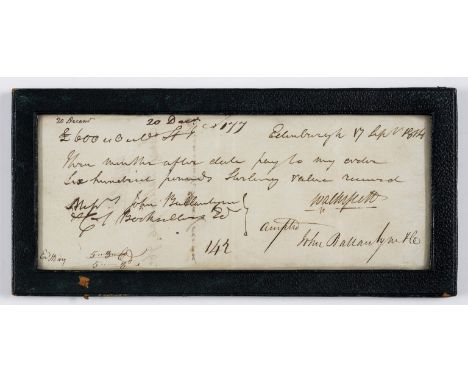 20 Decemr 20 Decr
£600 " 0 " 0 Stg Edinburgh 17 Septr 1814
Three months after date pay to my order
Six hundred pounds Sterling value received
Messrs John Ballantyne Walter Scott
& Co Booksellers Edr accepted
142 John Ballantyne & Co